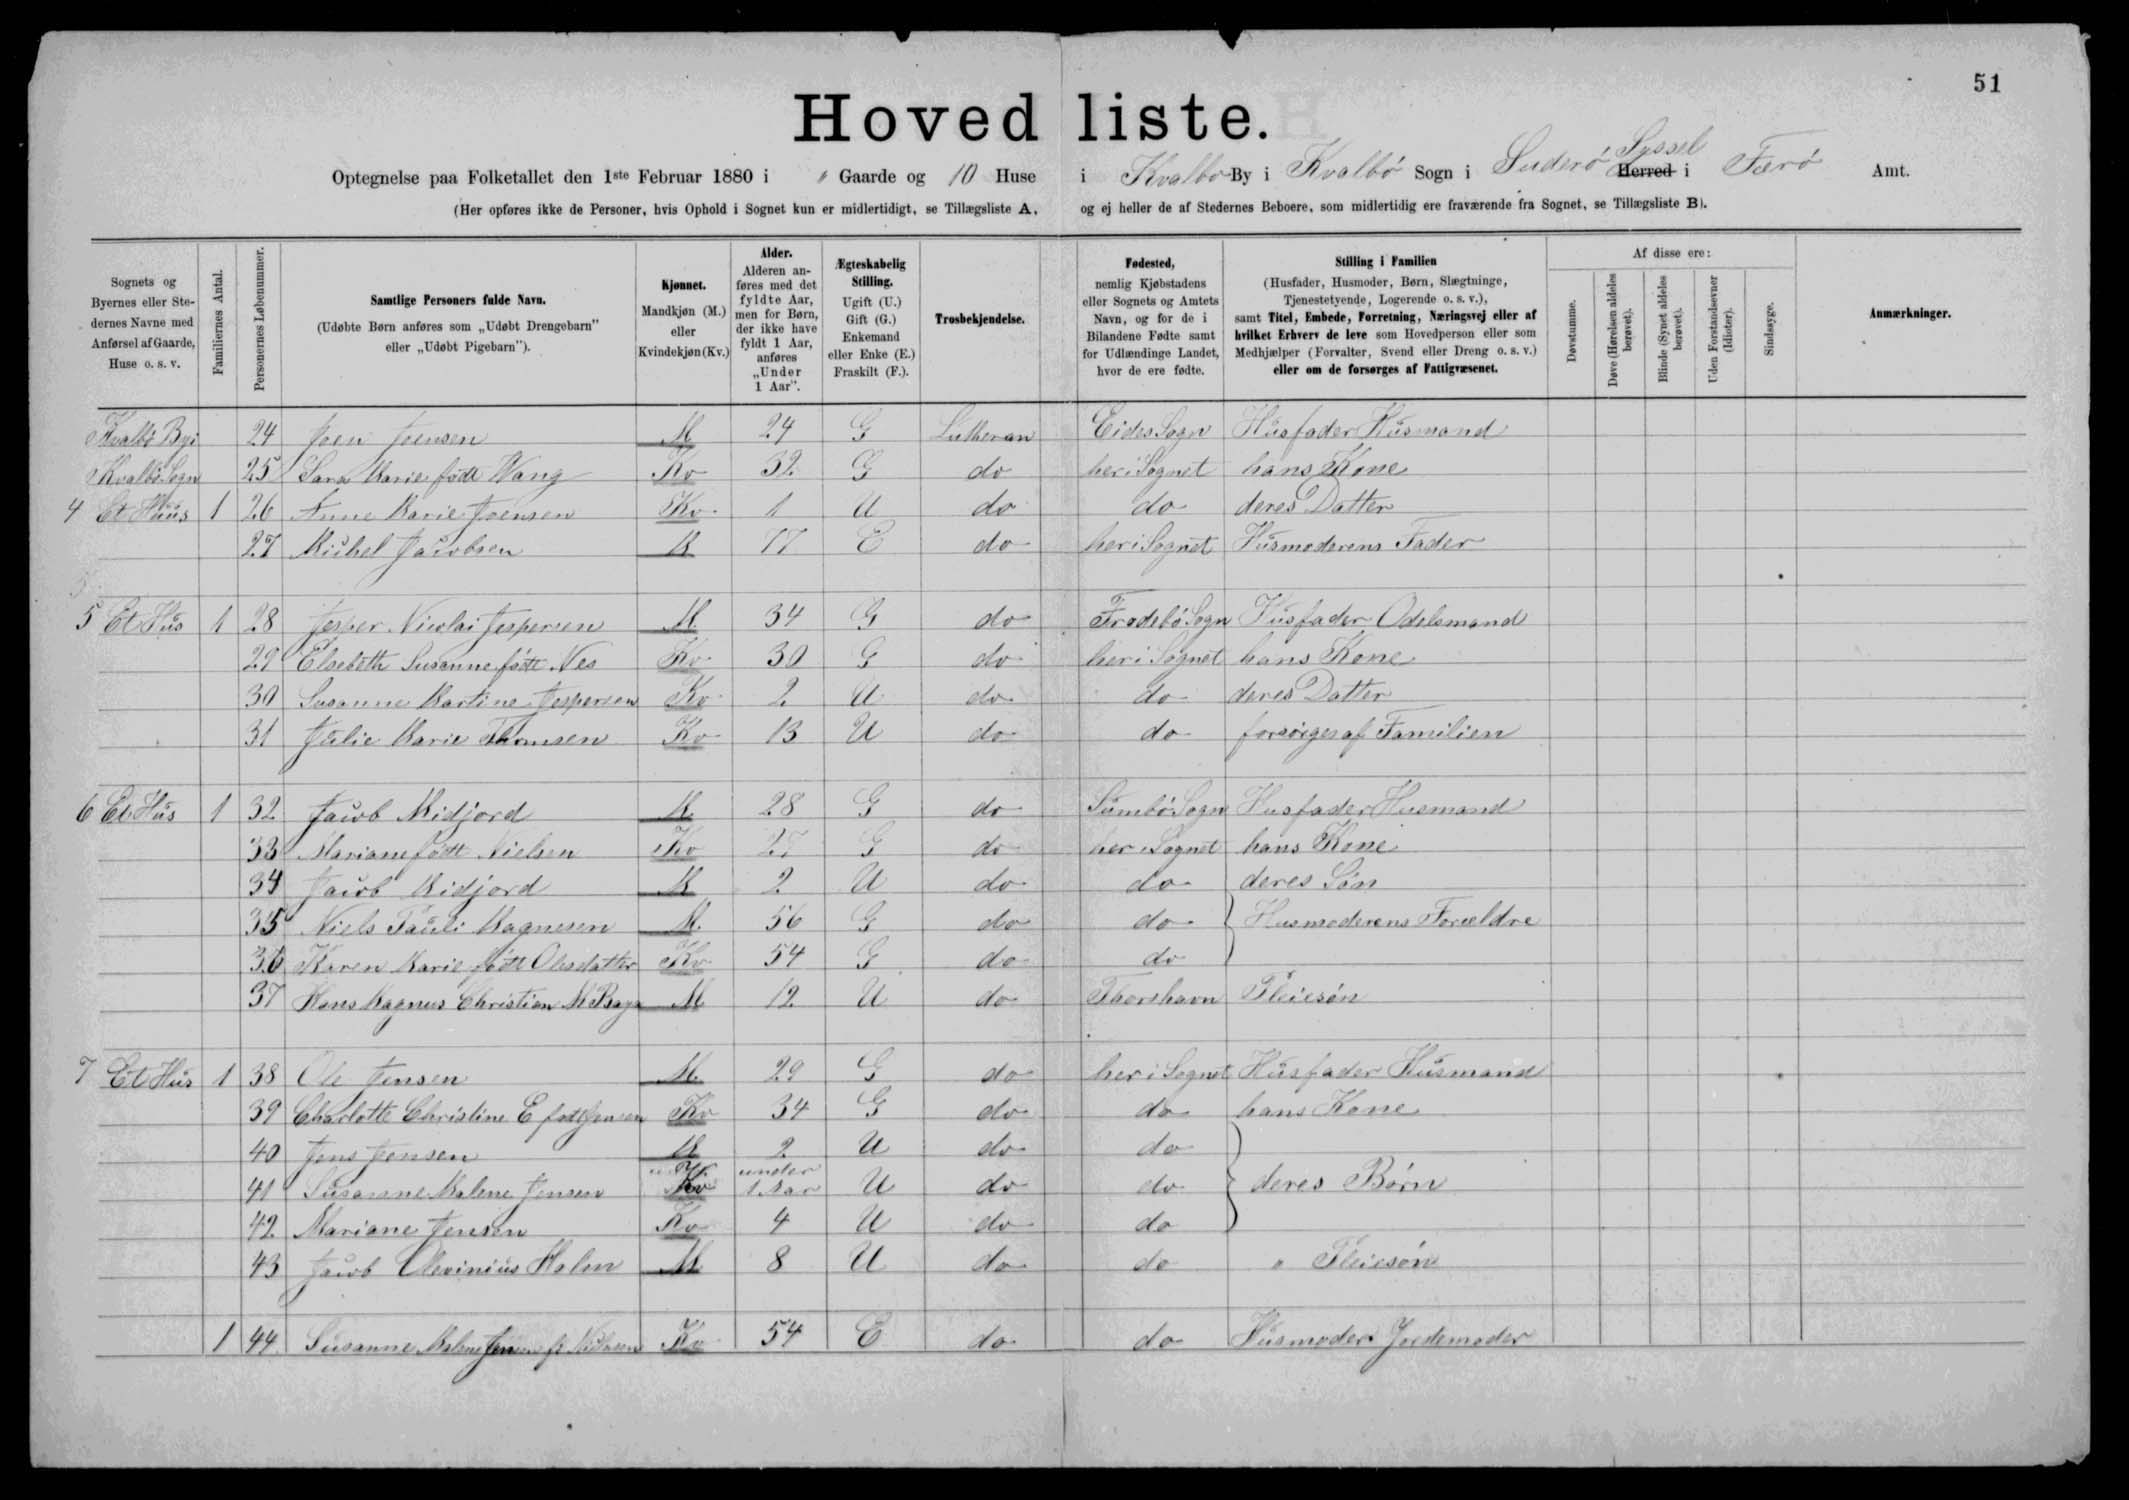 51
Hovedliste.
Optegnelse paa Folketallet den 1ste Februar 1880 i " Gaarde og 10 Huse i Kvalbø By i Kvalbø Sogn i Suderø Syssel Herred i Færø Amt.
(Her opføres ikke de Personer, hvis Ophold i Sognet kun er midlertidigt, se Tillægsliste A, og ej heller de af Stedernes Beboere, som midlertidig ere fraværende fra Sognet, se Tillægsliste B).
Sognets og Byernes eller Stedernes Navne med Anførsel af Gaarde, Huse o. s. v.
Familiernes Antal.
Personernes Løbenummer.
Samtlige Personers fulde Navn.
(Udøbte Børn anføres som „Udøbt Drengebarn" eller „Udøbt Pigebarn").
Kjønnet.
Mandkjøn (M.) eller Kvindekjøn (Kv.)
Alder.
Alderen anføres med det fyldte Aar, men for Børn, der ikke have fyldt 1 Aar, anføres „Under 1 Aar".
Ægteskabelig Stilling.
Ugift (U.) Gift (G.) Enkemand eller Enke (E.) Fraskilt (F.).
Trosbekjendelse.
Fødested,
nemlig Kjøbstadens eller Sognets og Amtets Navn, og for de i Bilandene Fødte samt for Udlændinge Landet, hvor de ere fødte.
Stilling i Familien
(Husfader, Husmoder, Børn, Slægtninge, Tjenestetyende, Logerende o. s. v.),
samt Titel, Embede, Forretning, Næringsvej eller af hvilket Erhverv de leve som Hovedperson eller som Medhjælper (Forvalter, Svend eller Dreng o. s. v.) eller om de forsørges af Fattigvæsenet.
Af disse ere:
Døvstumme.
Døve (Hørelsen aldeles berøvet).
Blinde (Synet aldeles berøvet).
Uden Forstandsevner (Idioter).
Sindssyge.
Anmærkninger.
Kvalbø Byi 24 Joen Joensen M 24 G Lutheran Eides Sogn Husfader Husmand
Kvalbø Sogn 25 Sara Marie født Wang Kv 32 G do her i Sognet hans Kone
4 Et Huus 1 26 Anne Marie Joensen Kv 1 U do do deres Datter
27 Michel Jacobsen M 77 E do her i Sognet Husmoderens Fader
5 Et Hus 1 28 Jesper Nicolai Jespersen M 34 G do Frodebø Sogn Husfader Odelsmand
29 Elsebeth Susanne født Nes Kv 30 G do her i Sognet hans Kone
30 Susanne Martine Jespersen Kv 2 U do do deres Datter
31 Julie Marie Thomsen Kv 13 U do do forsørges af Familien
6 Et Hus 1 32 Jacob Midjord M 28 G do Sumbø Sogn Husfader Husmand
33 Mariane født Nielsen Kv 27 G do her i Sognet hans Kone
34 Jacob Midjord M 2 U do do deres Søn
35 Niels Pauli Magnesen M. 56 G do do Husmoderens Forældre
36 Karen Marie født Olesdatter Kv 54 G do do
37 Hans Magnus Christian M M 12 U do Thorshavn Pleiesøn
7 Et Hus 1 38 Ole Jensen M. 29 G do her i Sognet Husfader Husmand
39 Charlotte Christine E født Jensen Kv 34 G do do hans Kone
40 Jens Jensen M 2 U do do
41 Susanne Malene Jensen Kv under 1 Aar U do do deres Børn
42 Mariane Jensen Kv 4 U do do
43 Jacob Olevinius Holm M 8 U do do " Pleiesøn
1 44 Susanne Malene Jensen f. Kv 54 E do do Husmoder Jordemoder